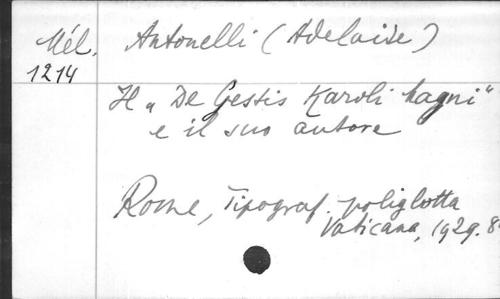 Mél. Antonelli (Adelaide)
1214
Il „De Gestis Karoli Magni“
e il suo autore
Rome, Tipograf. poliglotta
Vaticana, 1929. 8°